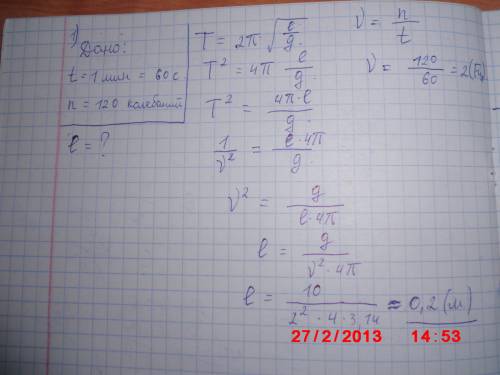 1)
Дано:
t = 1 мин = 60 с.
n = 120 колебаний
ℓ = ?
T = 2π √(ℓ/g)
T² = 4π ℓ/g
T² = 4π·ℓ/g
1/ν² = ℓ·4π/g
ν² = g/(ℓ·4π)
ℓ = g/(ν²·4π)
ℓ = 10/(2²·4·3,14) = 0,2 (м)
ν = n/t
ν = 120/60 = 2 (Гц)
27/2/2013 14:53